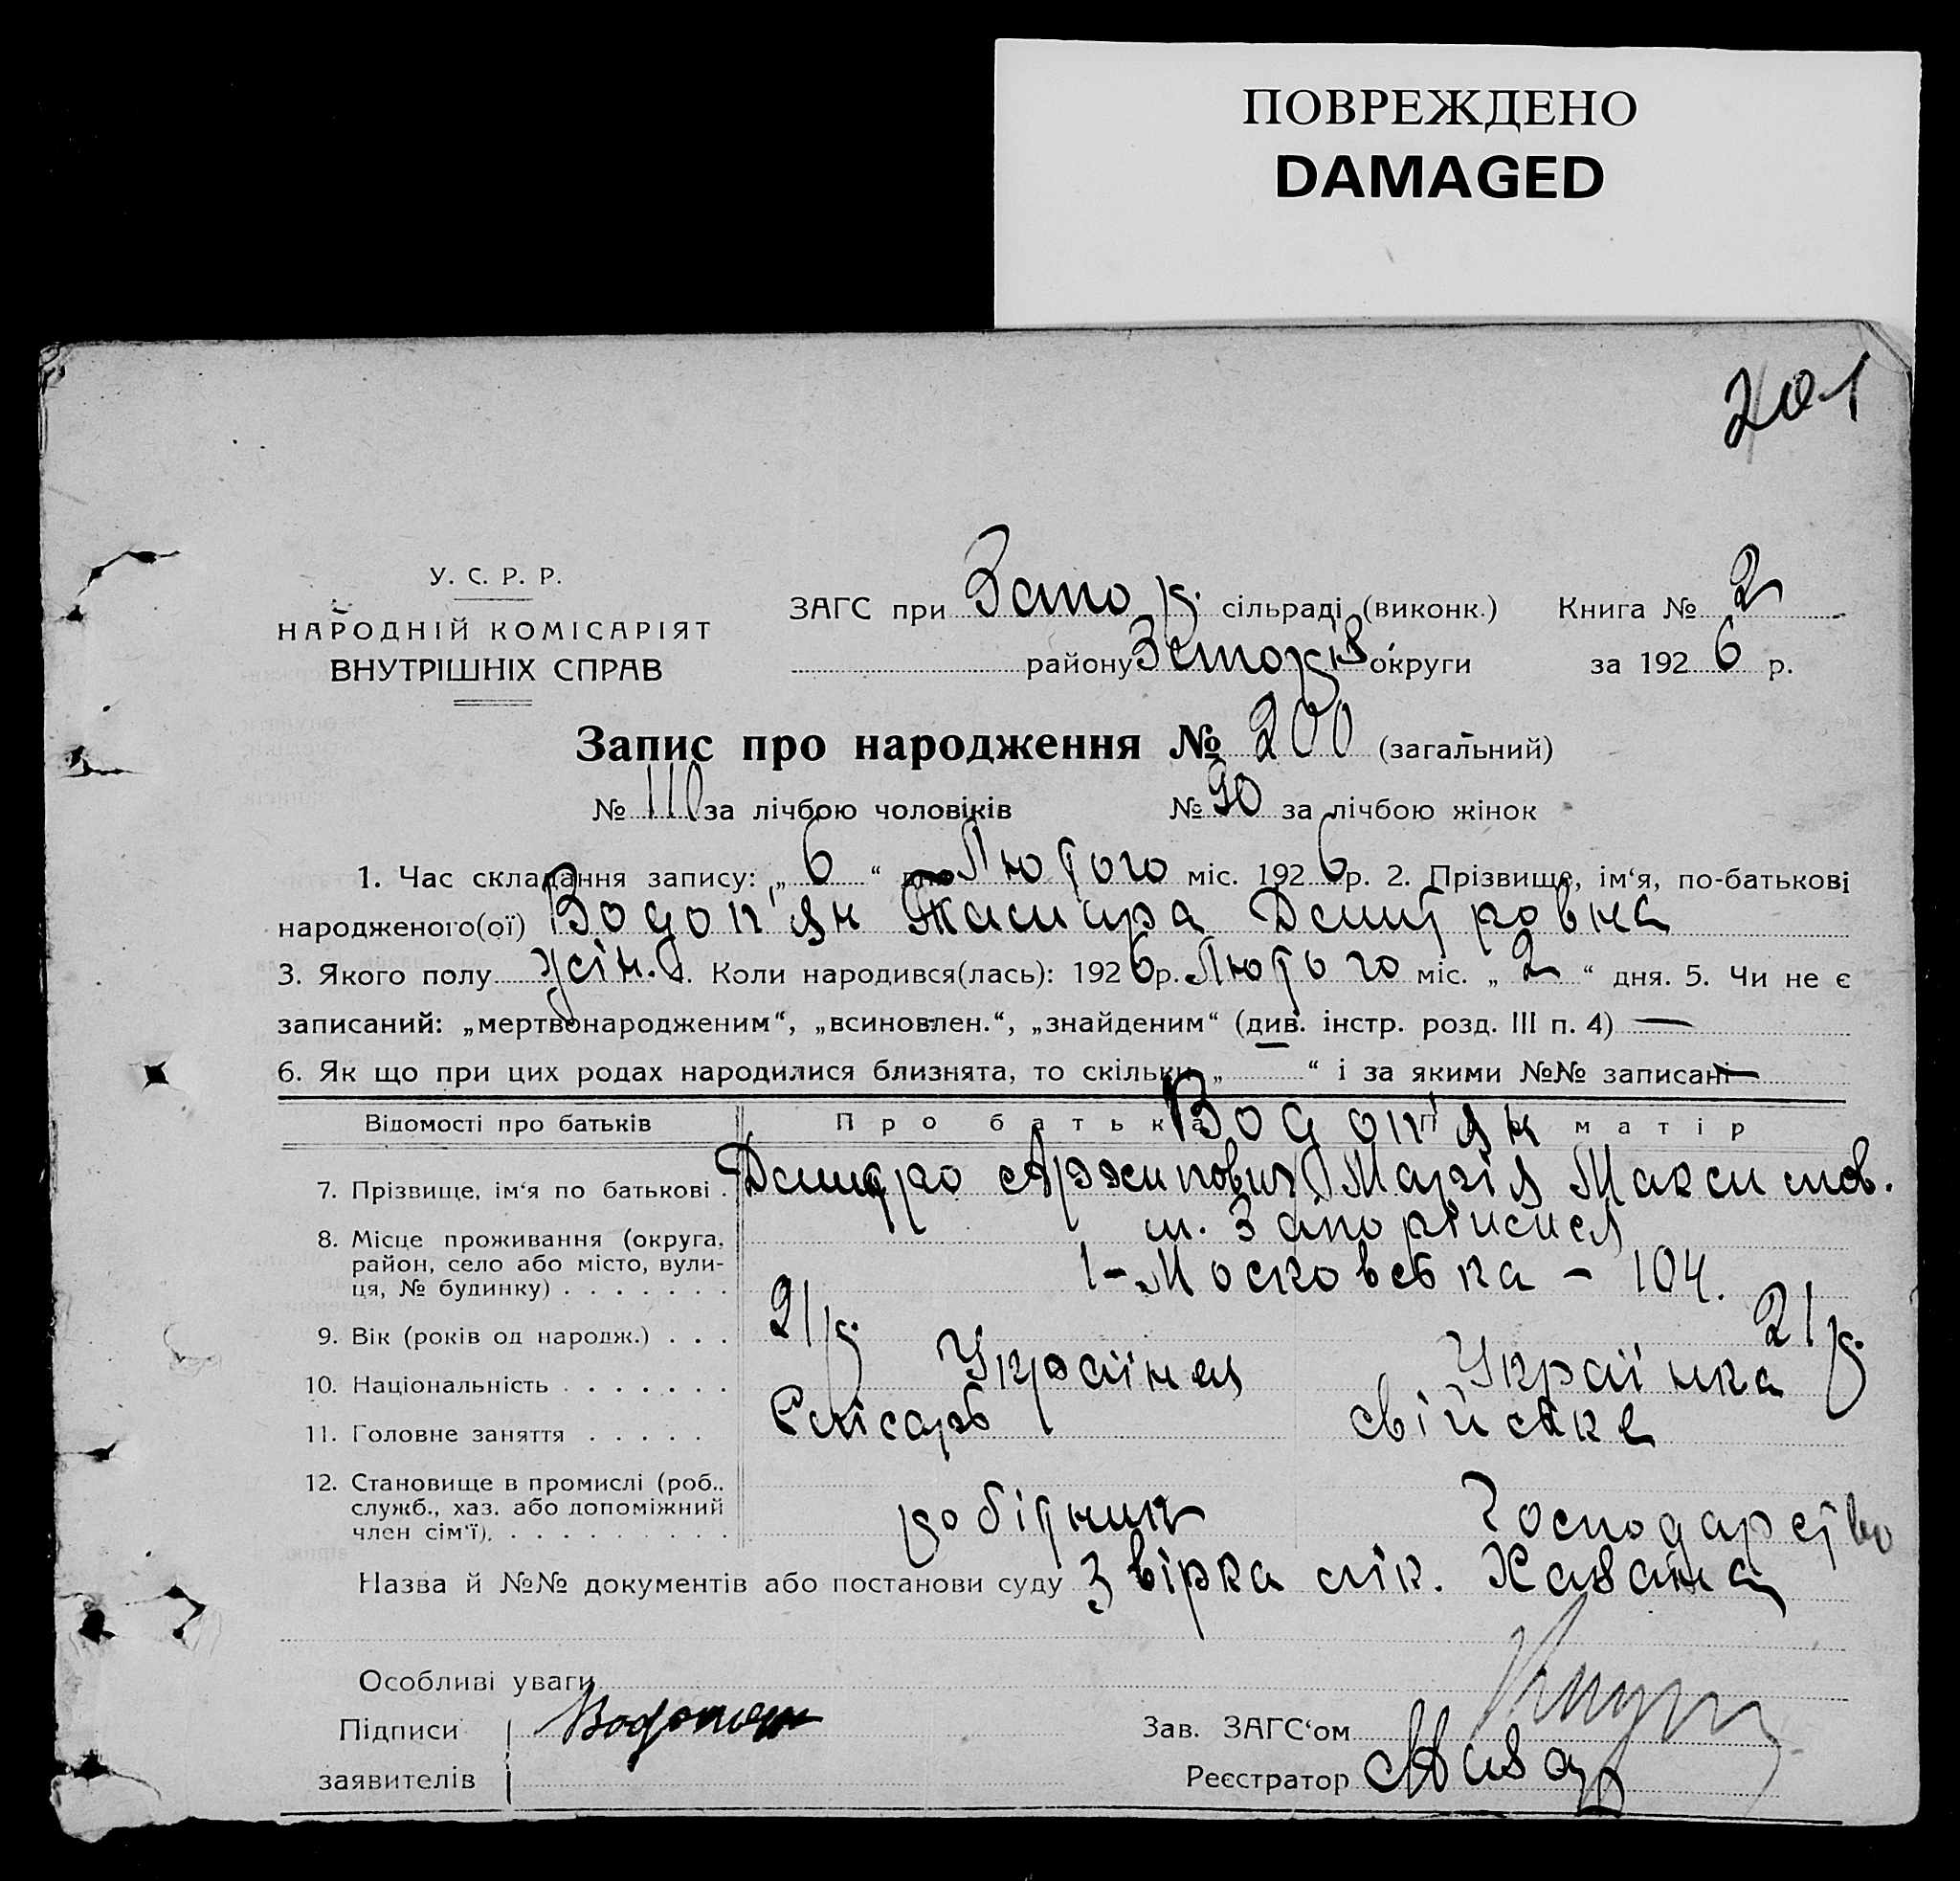 ПОВРЕЖДЕНО
DAMAGED
201
У. С. Р. Р.
НАРОДНІЙ КОМІСАРІЯТ
ВНУТРІШНІХ СПРАВ
ЗАГС при Запо р. сільраді (виконк.) Книга № 2
району Запоріз округи за 1926 р.
Запис про народження № 200 (загальний)
№ 110 за лічбою чоловіків № 90 за лічбою жінок
1. Час складання запису: „ 6 “ дня Лютого міс. 1926 р. 2. Прізвище, ім‘я, по-батькові
народженого(ої) Водоп'ян Тамара Дмитровна
3. Якого полу жін. 4. Коли народився(лась): 1926 р. Лютого міс. „ 2 “ дня. 5. Чи не є
записаний: „мертвонародженим“, „всиновлен.“, „знайденим“ (див. інстр. розд. III п. 4) —
6. Як що при цих родах народилися близнята, то скільки „ “ і за якими №№ записані —
Відомості про батьків Про батька Водоп'ян матір
7. Прізвище, ім‘я по батькові . Дмитро Архипович Марія Максимов.
8. Місце проживання (округа, район, село або місто, вулиця, № будинку) . . . . . . . м. Запоріжжя
1-Московська - 104.
9. Вік (років од народж.) . . . 21 р. 21 р.
10. Національність . . . . . . . Українец Українка
11. Головне заняття . . . . . Слісарь свійське
12. Становище в промислі (роб., служб., хаз. або допоміжний член сім‘ї). . . . . . . . . . робітник господарство
Назва й №№ документів або постанови суду Звірка лік.
Особливі уваги
Підписи Водопян Зав. ЗАГС‘ом
заявителів Реєстратор